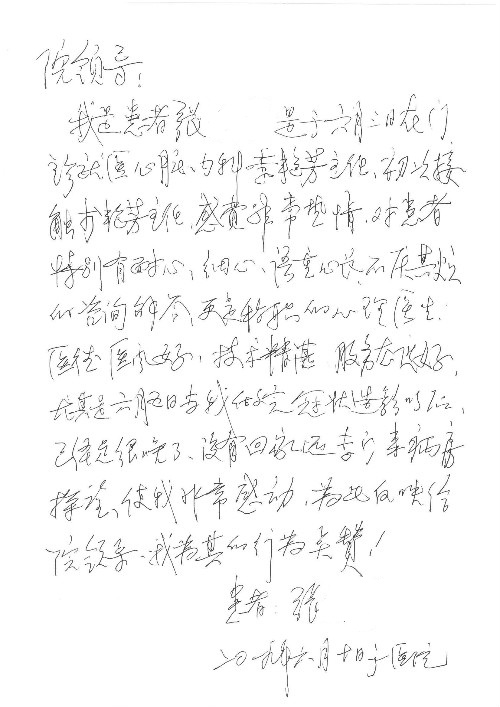 院领导：
我是患者张 是于六月三日在门
诊就医心脏内科李艳芳主任，初次接
触李艳芳主任，感觉非常热情，对患者
特别有耐心、细心、语重心长，不厌其烦
的咨询解答，更是特殊的心理医生。
医德医风好，技术精湛 服务态度好，
尤其是六月五日为我做完冠状造影以后，
已经是很晚了，没有回家还来病房
探望，使我非常感动，为此反映给
院领导，我为其的行为点赞！
患者：张
二〇一九年六月十日于医院